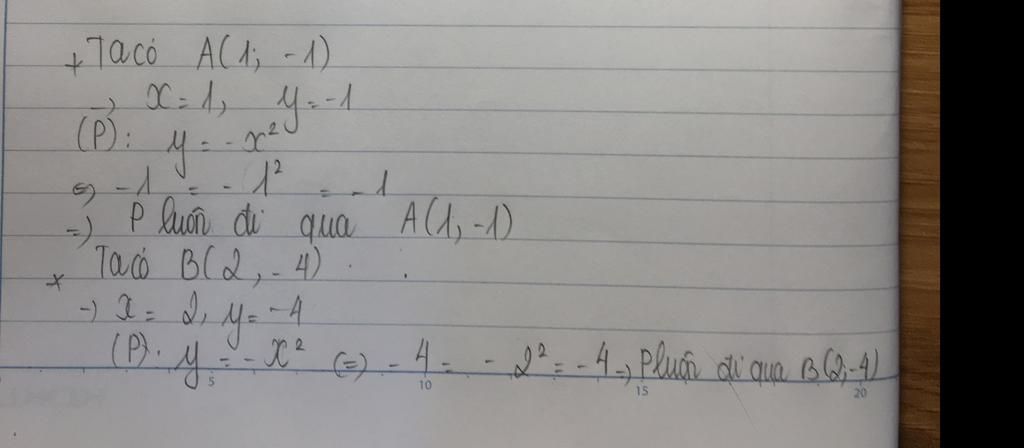 + Ta có A(1; -1)
→ x = 1, y = -1
(P): y = -x²
⇔ -1 = -1² = -1
⇒ P luôn đi qua A(1, -1)
* Ta có B(2, -4)
→ x = 2, y = -4
(P): y = -x² (=) -4 = -2² = -4 → P luôn đi qua B(2; -4)
5 10 15 20